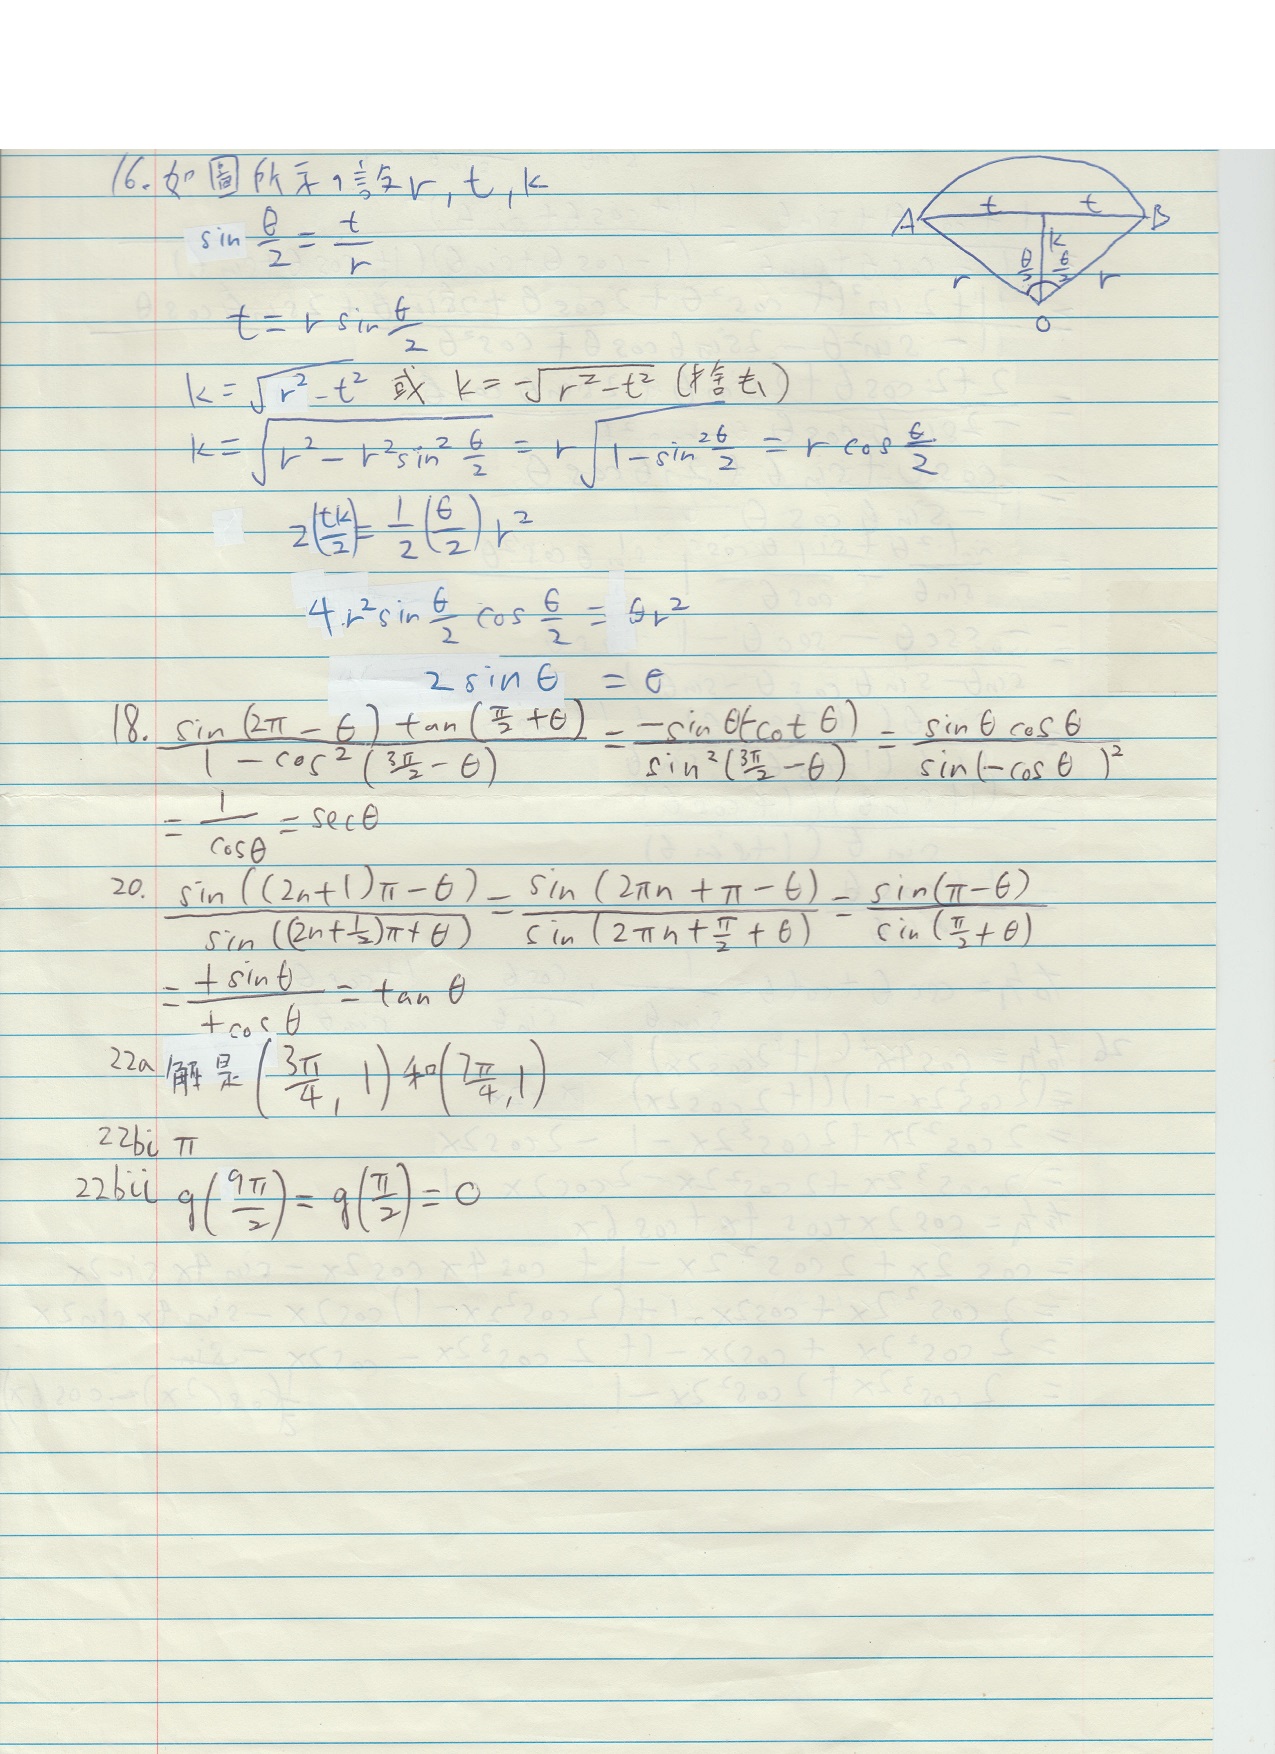 16. 如圖所示,設r, t, k
A t t B
k
θ/2 θ/2
r r
O
sin θ/2 = t/r
t = r sin θ/2
k = √(r² - t²) 或 k = -√(r² - t²) (捨去)
k = √(r² - r² sin² θ/2) = r√(1 - sin² θ/2) = r cos θ/2
2(tk/2) = 1/2 (θ/2) r²
4 r² sin θ/2 cos θ/2 = θr²
2 sin θ = θ
18. sin(2π - θ) tan(π/2 + θ) / 1 - cos²(3π/2 - θ) = -sin θ(-cot θ) / sin²(3π/2 - θ) = sin θ cos θ / sin(-cos θ )²
= 1/cosθ = secθ
20. sin((2n+1)π - θ) / sin((2n+1/2)π + θ) = sin(2πn + π - θ) / sin(2πn + π/2 + θ) = sin(π - θ) / sin(π/2 + θ)
= +sinθ / +cosθ = tan θ
22a 解是(3π/4, 1)和(7π/4, 1)
22bi π
22bii g(9π/2) = g(π/2) = 0